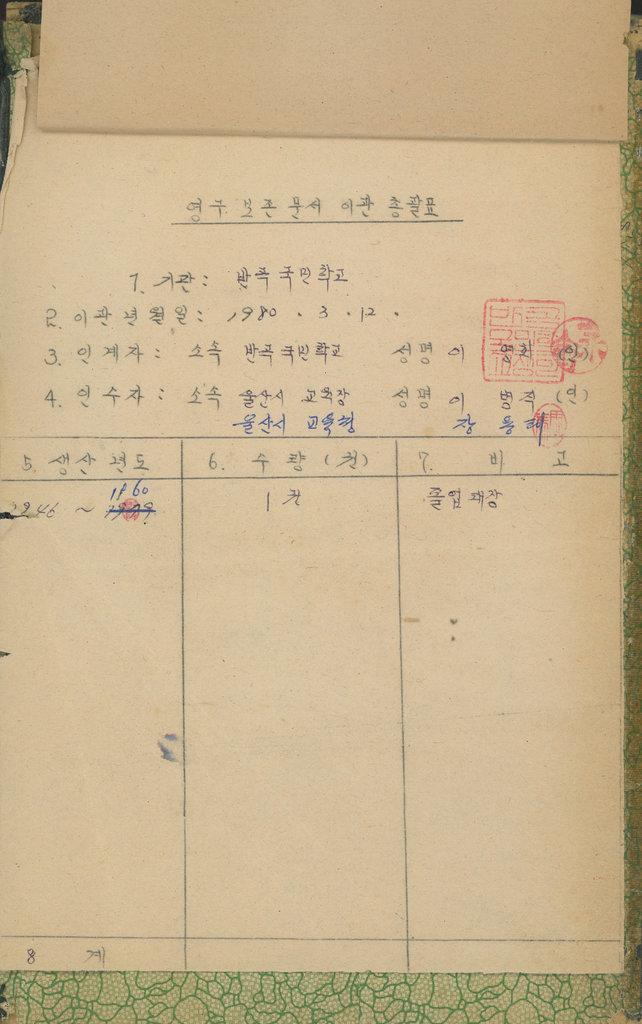 영구 보존 문서 이관 총괄표
1. 기관 : 반곡국민학교
2. 이관 년월일 : 1980 . 3 . 12 .
3. 인계자 : 소속 반곡국민학교 성명 이 영화 (인)
4. 인수자 : 소속 울산시 교육장 성명 이 병직 (인)
울산시 교육청 장
5. 생산년도 6. 수량 (권) 7. 비 고
1960
1946 ~ 1979 1권 졸업대장
8 계